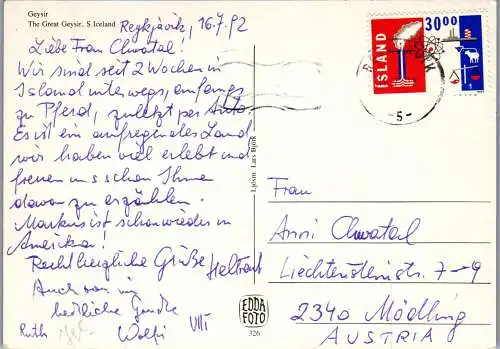 Geysir
The Great Geysir, S. Iceland.
Reykjavík, 16.7.92
Liebe Frau Chwatal!
Wir sind seit 2 Wochen in
Island unterwegs, anfangs
zu Pferd, zuletzt per Auto.
Es ist ein aufregendes Land
wir haben viel erlebt und
freuen uns schon Ihnen
davon zu erzählen.
Markus ist schon wieder in
Amerika!
Recht herzliche Grüße Heltraut
Auch von mir
herzliche Grüße
Ruth Wolfi
Ljósm. Lars Björk
EDDA
FOTO
326
ÍSLAND
30 00
-5-
Frau
Anni Chwatal
Liechtensteinstr. 7-9
2340 Mödling
AUSTRIA